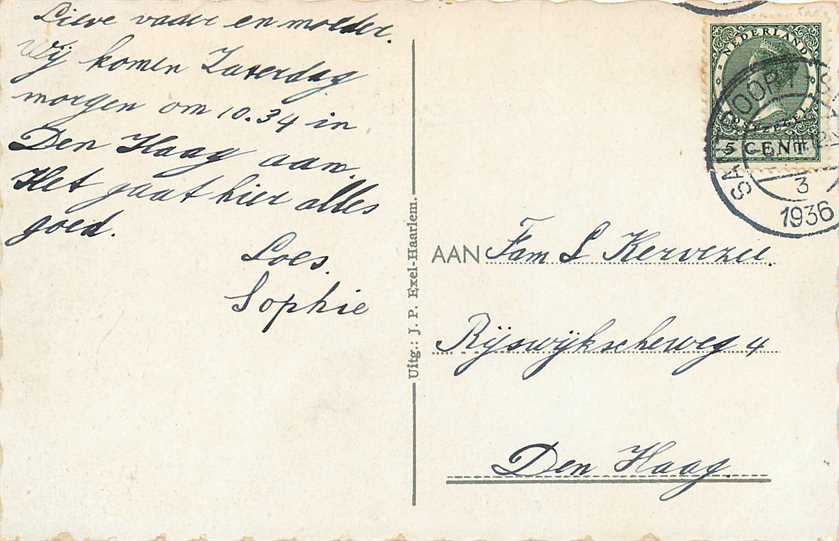 Lieve vader en moeder.
Wij komen Zaterdag
morgen om 10.34 in
Den Haag aan.
Het gaat hier alles
goed.
Loes.
Sophie
Uitg.: J. P. Exel-Haarlem.
NEDERLAND
5 CENT
SANTPOORT
3
1936
AAN Fam S Kervezee.
Rijswijkscheweg 4
Den Haag.